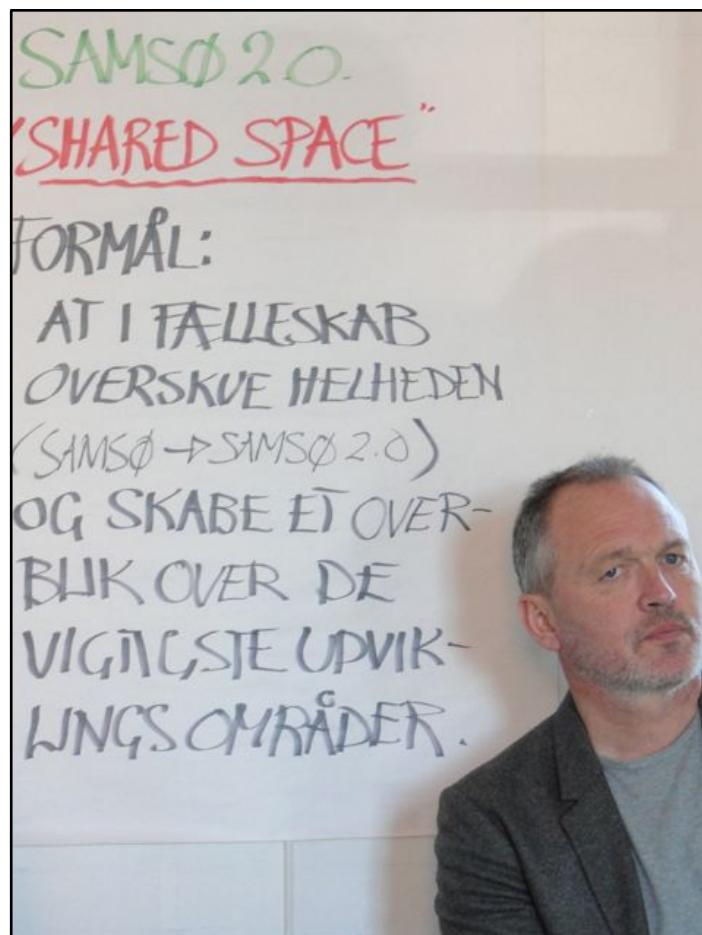 SAMSØ 2.0.
"SHARED SPACE"
FORMÅL:
AT I FÆLLESKAB
OVERSKUE HELHEDEN
(SAMSØ → SAMSØ 2.0)
OG SKABE ET OVER-
BLIK OVER DE
VIGTIGSTE UDVIK-
LINGSOMRÅDER.